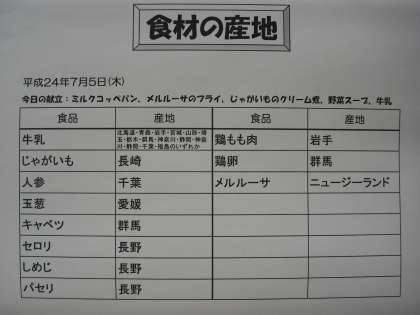 食材の産地
平成24年7月5日(木)
今日の献立：ミルクコッペパン、メルルーサのフライ、じゃがいものクリーム煮、野菜スープ、牛乳
食品 産地 食品 産地
牛乳 北海道・青森・岩手・宮城・山形・埼玉・栃木・群馬・神奈川・静岡・神奈川・静岡・千葉・福島のいずれか 鶏もも肉 岩手
じゃがいも 長崎 鶏卵 群馬
人参 千葉 メルルーサ ニュージーランド
玉葱 愛媛
キャベツ 群馬
セロリ 長野
しめじ 長野
パセリ 長野